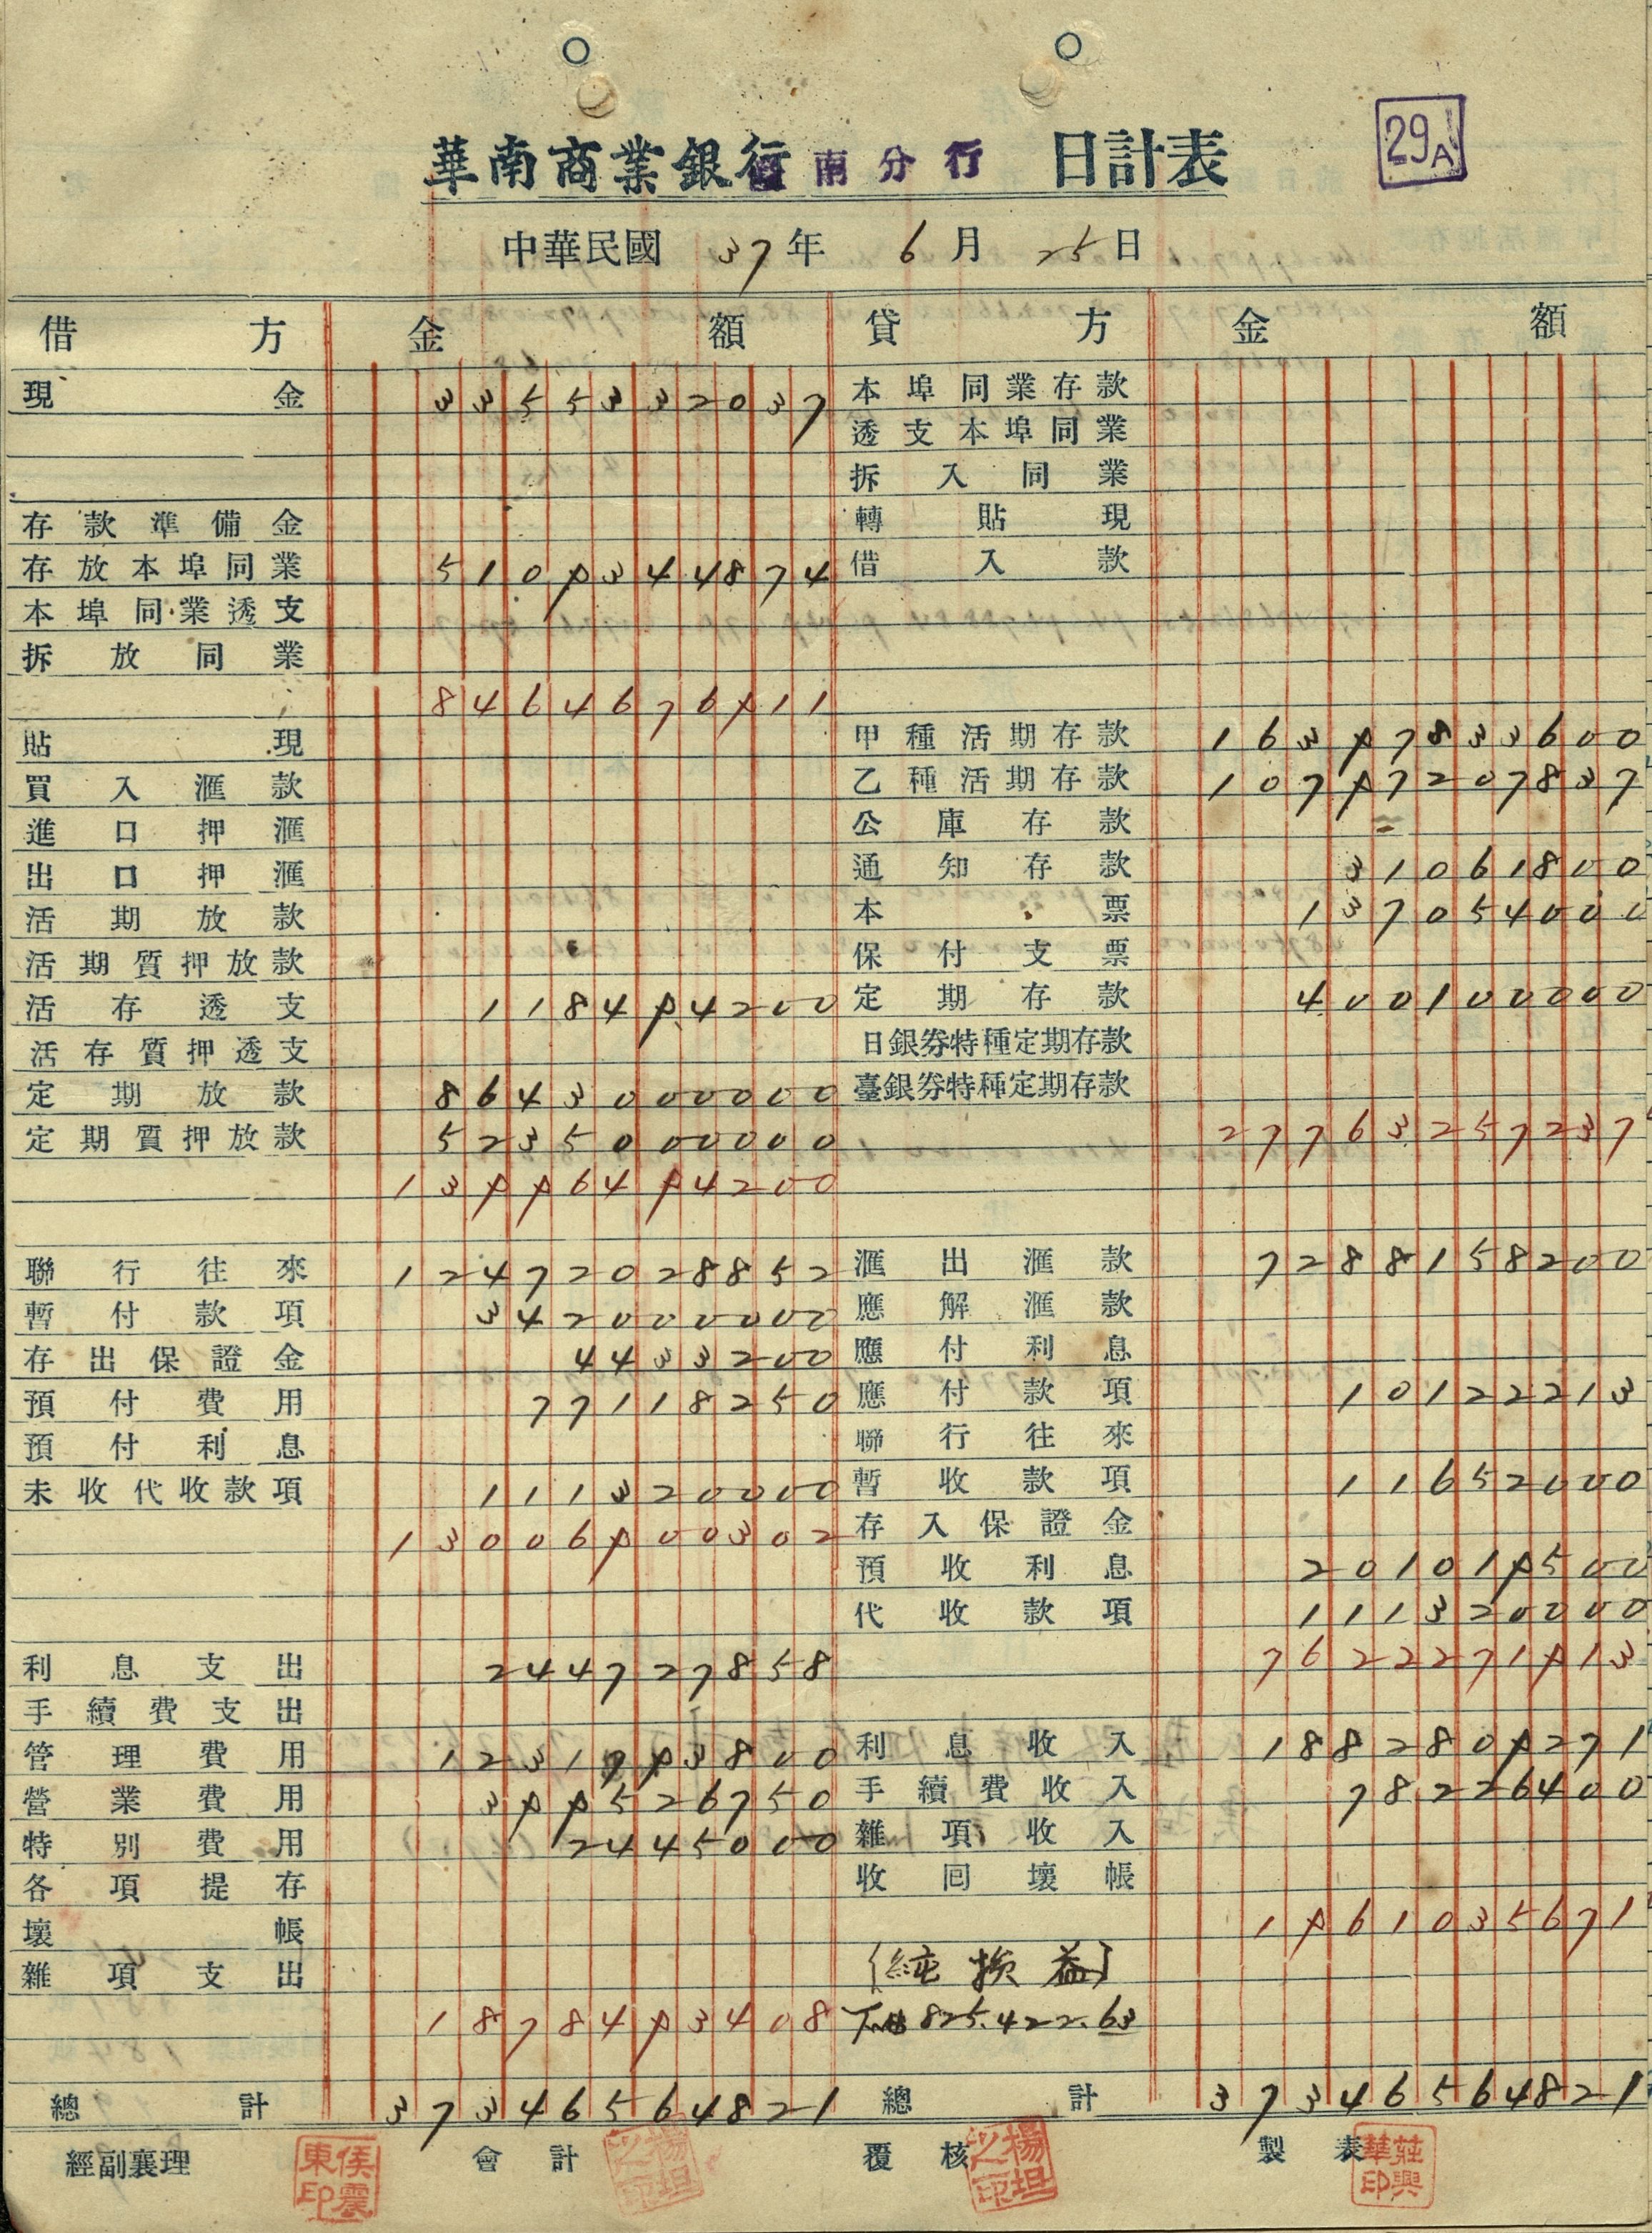 29A
華南商業銀行 南分行 日計表
中華民國 37年 6月 25日
借方 金額 貸方 金額
現金 3355332037 本埠同業存款
透支本埠同業
拆入同業
存款準備金 轉貼現
存放本埠同業 5109344874 借入款
本埠同業透支
拆放同業
8464676911
貼現 甲種活期存款 16397833600
買入滙款 乙種活期存款 10797207837
進口押滙 公庫存款
出口押滙 通知存款 31061800
活期放款 本票 137054000
活期質押放款 保付支票
活存透支 118494200 定期存款 400100000
活存質押透支 日銀券特種定期存款
定期放款 8643000000 臺銀券特種定期存款
定期質押放款 5235000000 27763257237
13996494200
聯行往來 12472028852 滙出滙款 7288158200
暫付款項 342000000 應解滙款
存出保證金 4433200 應付利息
預付費用 77118250 應付款項 10122213
預付利息 聯行往來
未收代收款項 111320000 暫收款項 11652000
13006900302 存入保證金
預收利息 201019500
代收款項 111320000
利息支出 244727858 7622271913
手續費支出
管理費用 1231793800 利息收入 1882809271
營業費用 399526750 手續費收入 78226400
特別費用 2445000 雜項收入
各項提存 收回壞帳
壞帳 1961035671
雜項支出 (純損益)
1878493408 825.422.63
總計 37346564821 總計 37346564821
經副襄理 侯震東印 會計 楊坦之印 覆核 楊坦之印 製表 莊興華印